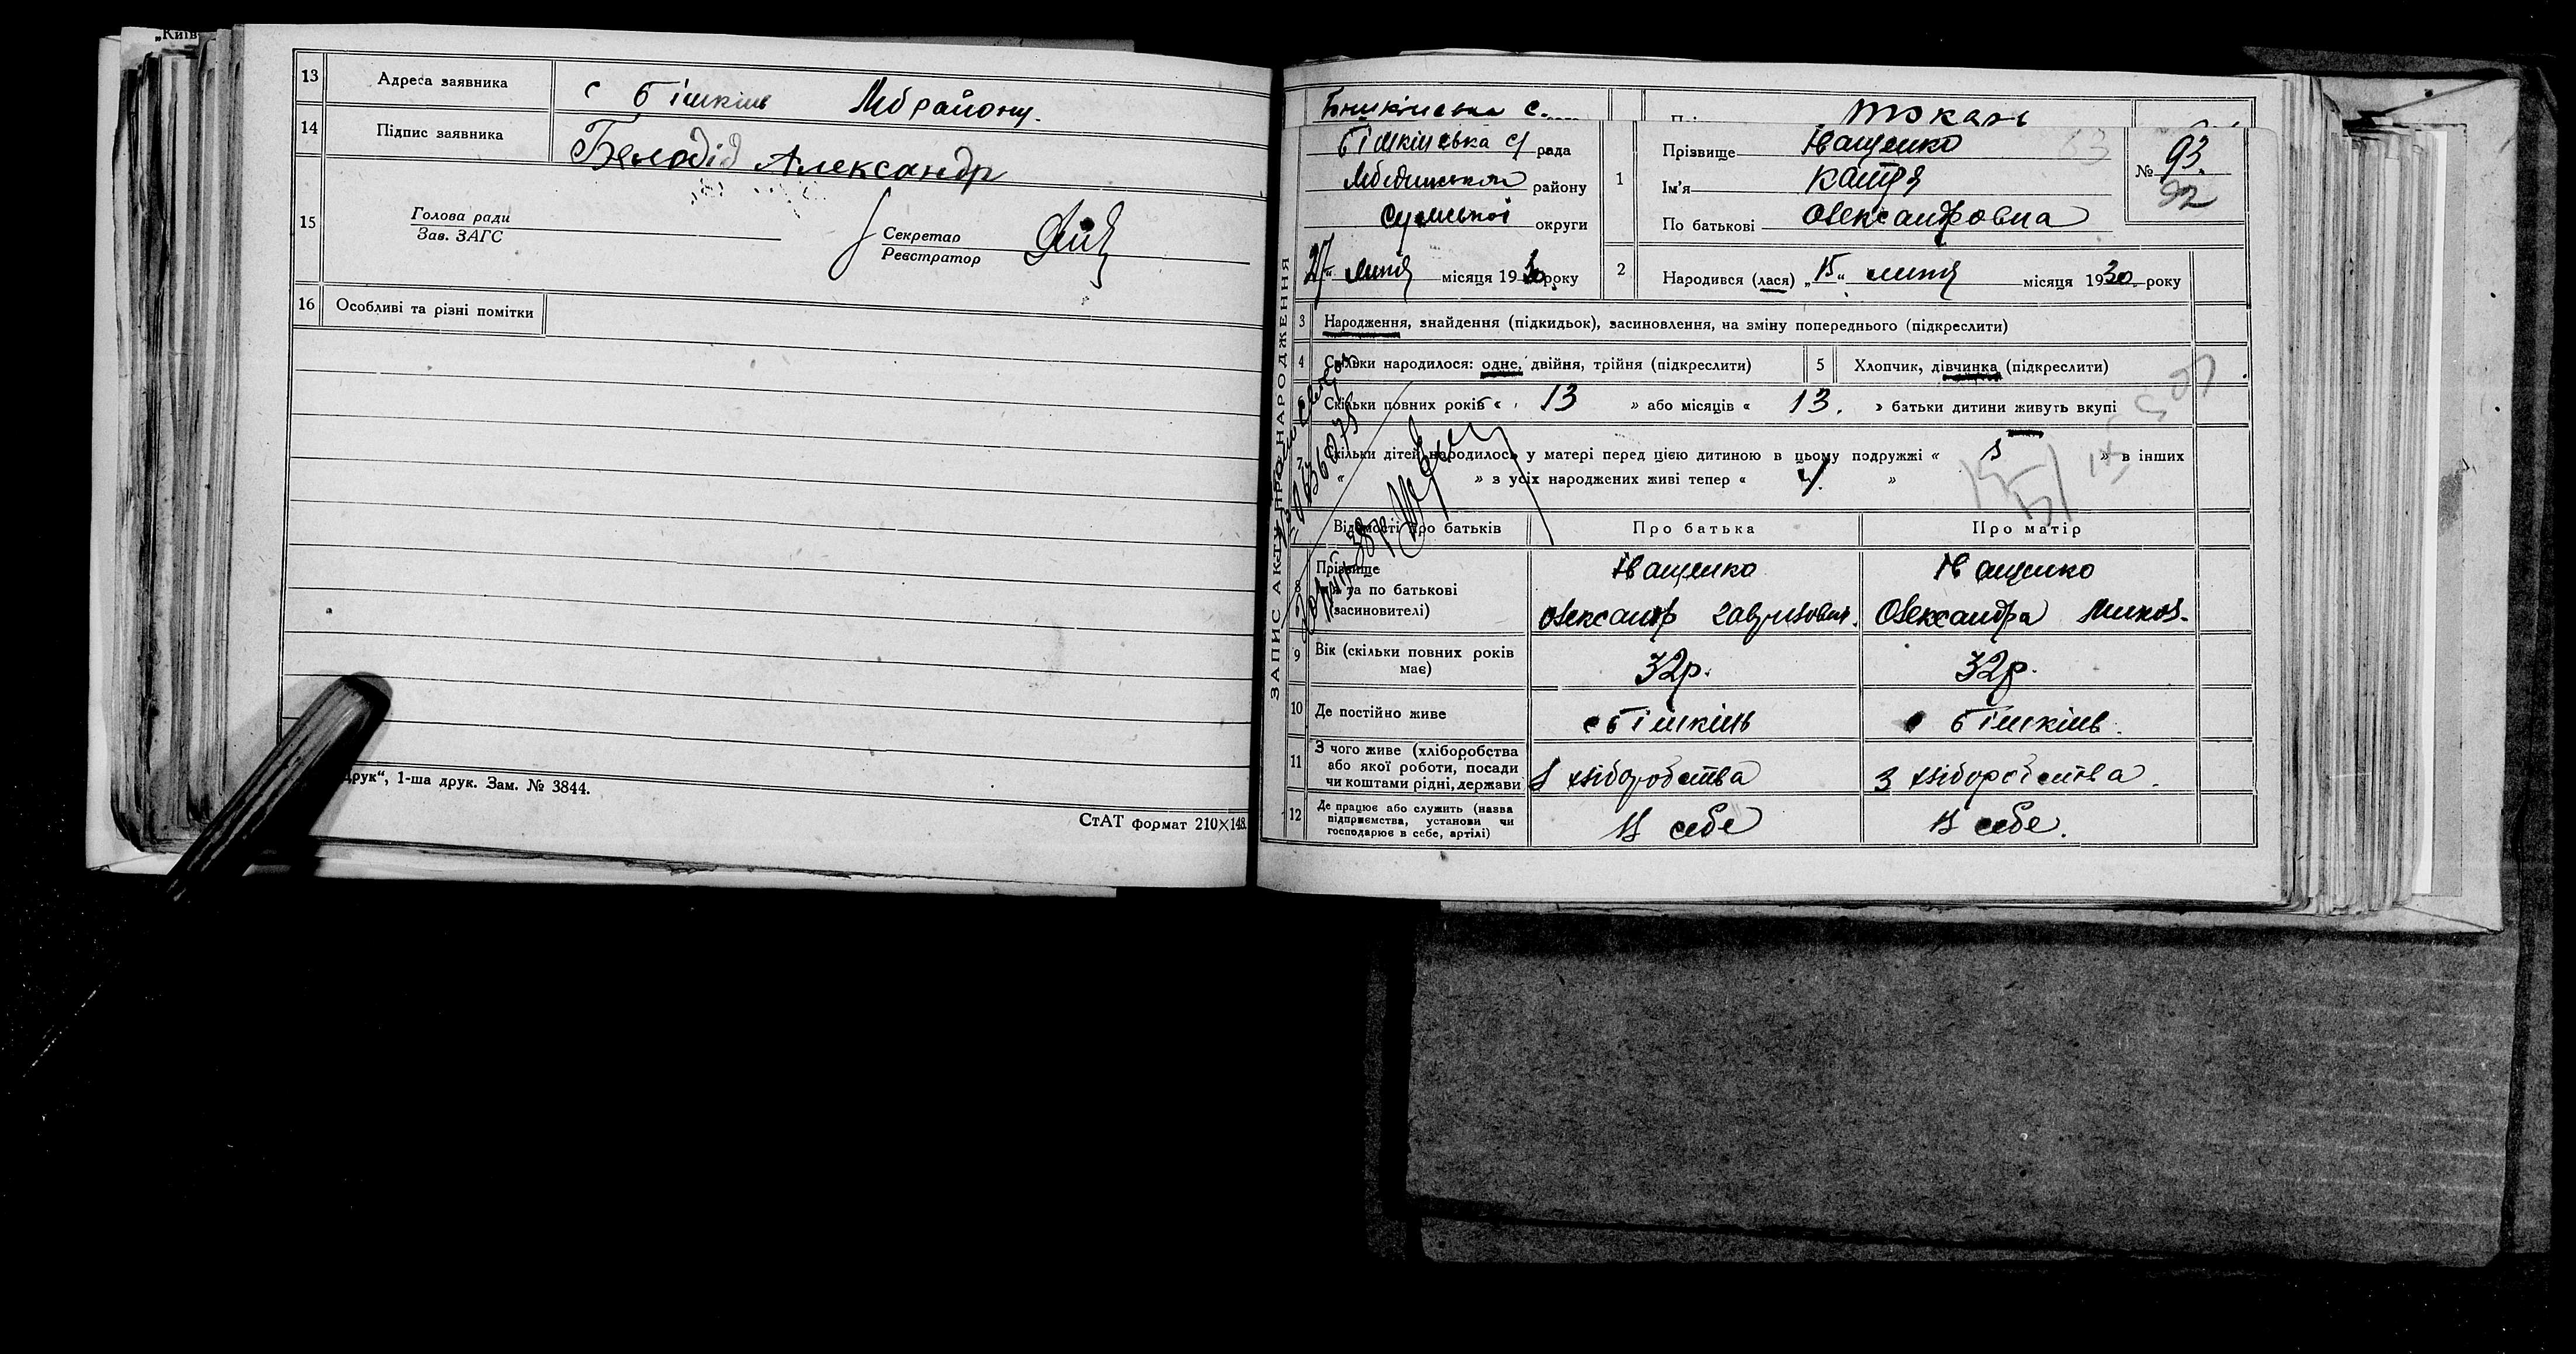 „Київ
13 Адреса заявника с Бішкінь Леб району.
14 Підпис заявника Белодід Александр
15 Голова ради
Зав. ЗАГС
Секретар
Реєстратор
16 Особливі та різні помітки
друк“, 1-ша друк. Зам. № 3844.
СтАТ формат 210×148.
Бишкінська с. Токарь
ЗАПИС АКТУ ПРО НАРОДЖЕННЯ
Бішкінська с/ рада
Лебединського району
Сумської округи
27 липня місяця 1930 року
1 Прізвище Іващенко
Ім'я Катря
По батькові Олександровна
№ 93.
92
2 Народився (лася) „15„ липня місяця 1930. року
3 Народження, знайдення (підкидьок), засиновлення, на зміну попереднього (підкреслити)
4 Скільки народилося: одне, двійня, трійня (підкреслити) 5 Хлопчик, дівчинка (підкреслити)
Скільки повних років « 13 » або місяців « 13. » батьки дитини живуть вкупі
7 Скільки дітей народилось у матері перед цією дитиною в цьому подружжі « » в інших
« » з усіх народжених живі тепер « 4. »
Відомості про батьків Про батька Про матір
8 Прізвище Іващенко Іващенко
ім'я та по батькові
(засиновителі) Олександр Гаврилович. Олександра Микол.
9 Вік (скільки повних років
має) 32р. 32р.
10 Де постійно живе с Бішкінь с Бішкінь.
11 З чого живе (хліборобства
або якої роботи, посади
чи коштами рідні, держави З хліборобства З хліборобства.
12 Де працює або служить (назва
підприємства, установи чи
господарює в себе, артілі) У себе У себе.